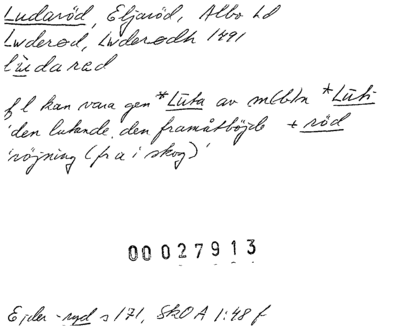 Ludaröd, Eljaröd, Albo hd
Lwderod, Lwderodh 1491
lùdared
fl kan vara gen *Lūta av mbn *Lūti
'den lutande, den framåtböjde + röd
'röjning (fr a i skog)'
00027913
Ejder -ryd s 171, SkO A 1:48 f